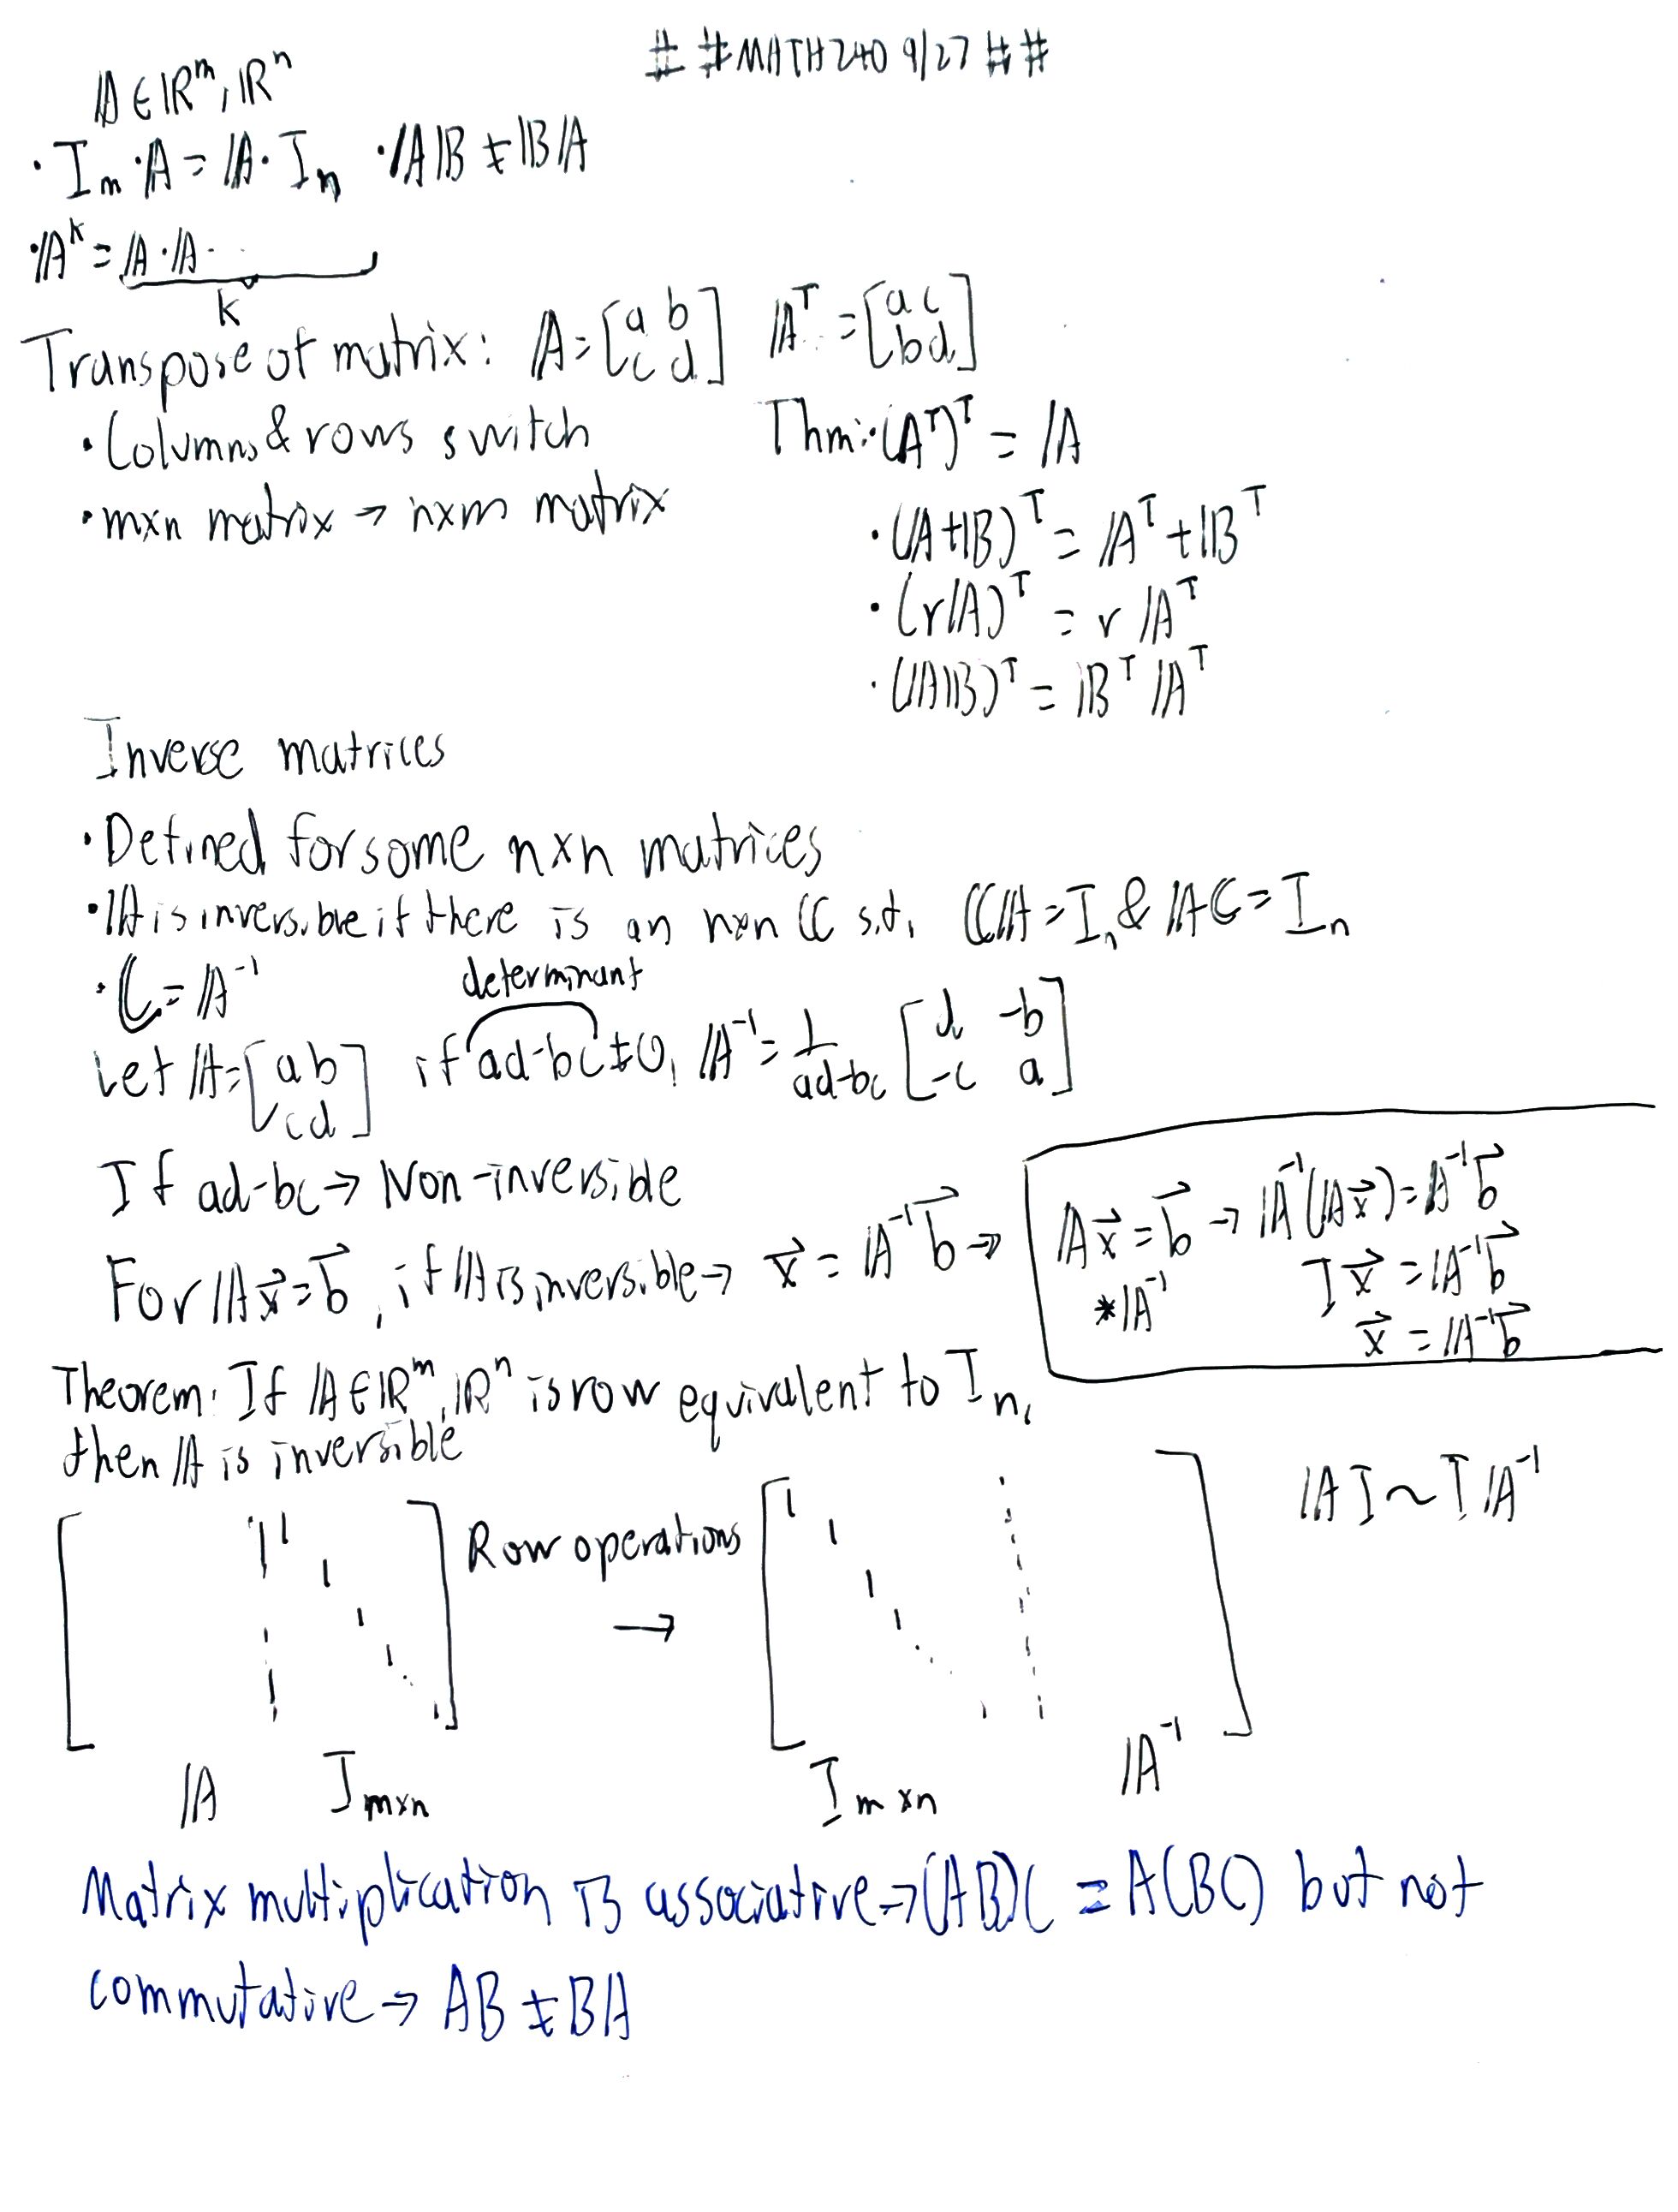 # #MATH240 9/27 ##
A∈ℝᵐ,ℝⁿ
· Iₘ·A = A·Iₙ · AB ≠ BA
· Aᵏ = A·A· ..
k
Transpose of matrix: A=[a b c d] Aᵀ=[a c b d]
· Columns & rows switch
· mxn matrix → nxm matrix
Thm: · (Aᵀ)ᵀ = A
· (A+B)ᵀ = Aᵀ+Bᵀ
· (rA)ᵀ = rAᵀ
· (AB)ᵀ = BᵀAᵀ
Inverse matrices
· Defined for some nxn matrices
· A is inversible if there is an nxn C s.t. CA=Iₙ & AC=Iₙ
· C=A⁻¹
determinant
Let A=[a b c d] if ad-bc≠0, A⁻¹= 1/ad-bc [d -b -c a]
If ad-bc → Non-inversible
For Ax⃗=b⃗, if A is inversible → x⃗ = A⁻¹b⃗ →
Ax⃗=b⃗ → A⁻¹(Ax⃗)=A⁻¹b⃗
*A⁻¹ Ix⃗ =A⁻¹b⃗
x⃗ =A⁻¹b⃗
Theorem: If A∈ℝᵐ,ℝⁿ is row equivalent to Iₙ,
then A is inversible
AI~IA⁻¹
Row operations
→
A Iₘₓₙ Iₘₓₙ A⁻¹
Matrix multiplication is associative → (AB)C = A(BC) but not
commutative → AB ≠ BA